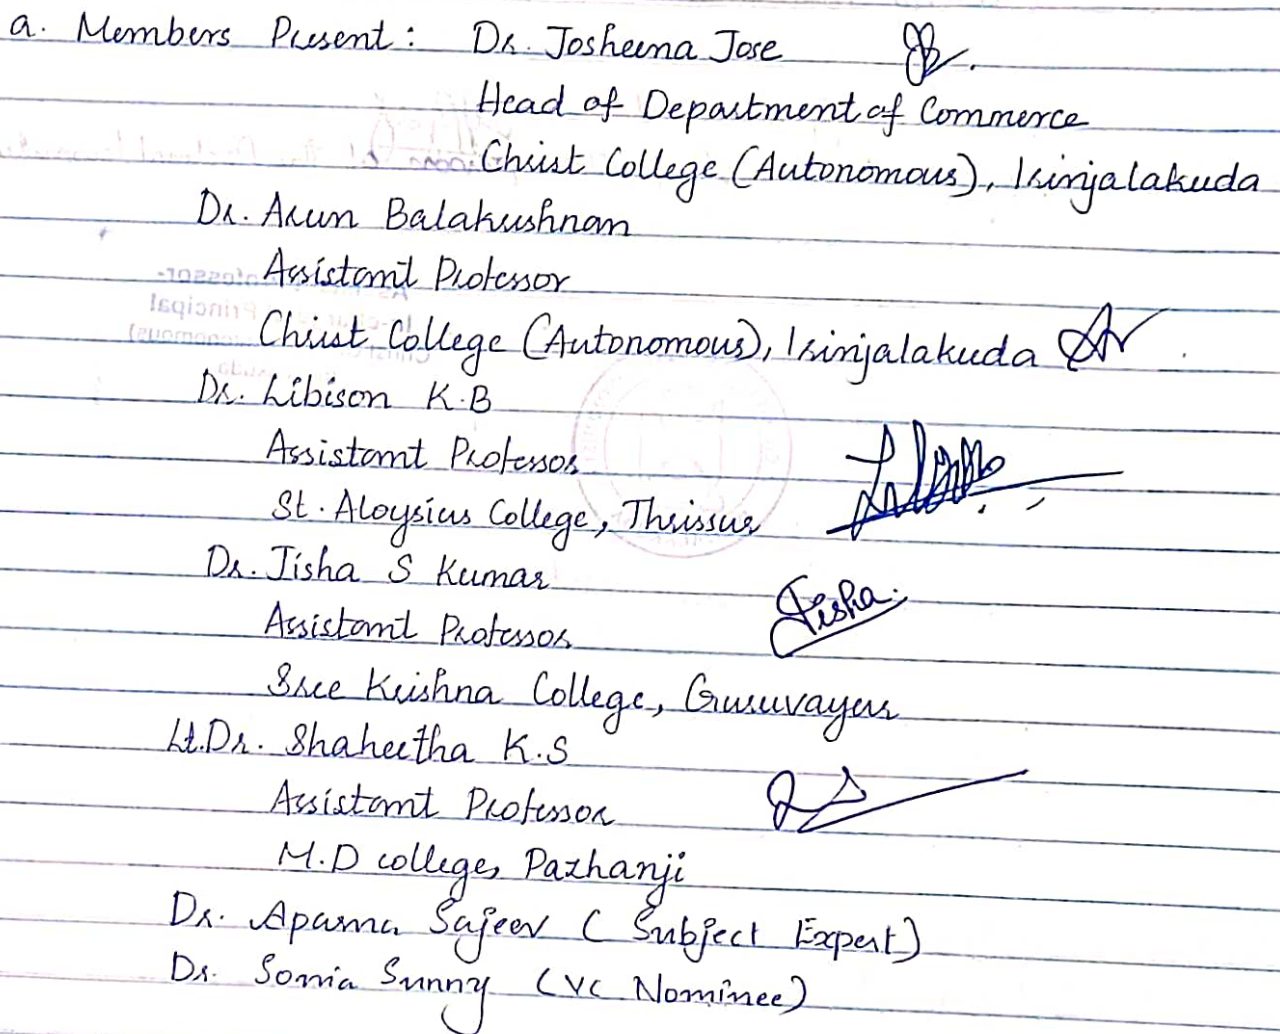 a. Members Present : Dr. Josheena Jose
Head of Department of Commerce
Christ College (Autonomous), Irinjalakuda
Dr. Arun Balakrishnan
Assistant Professor
Christ College (Autonomous), Irinjalakuda
Dr. Libison K.B
Assistant Professor
St. Aloysius College, Thrissur
Dr. Jisha S Kumar
Jisha.
Assistant Professor
Sree Krishna College, Guruvayur
Lt.Dr. Shaheetha K.S
Assistant Professor
M.D college, Pazhanji
Dr. Aparna Sajeev ( Subject Expert)
Dr. Sonia Sunny (VC Nominee)